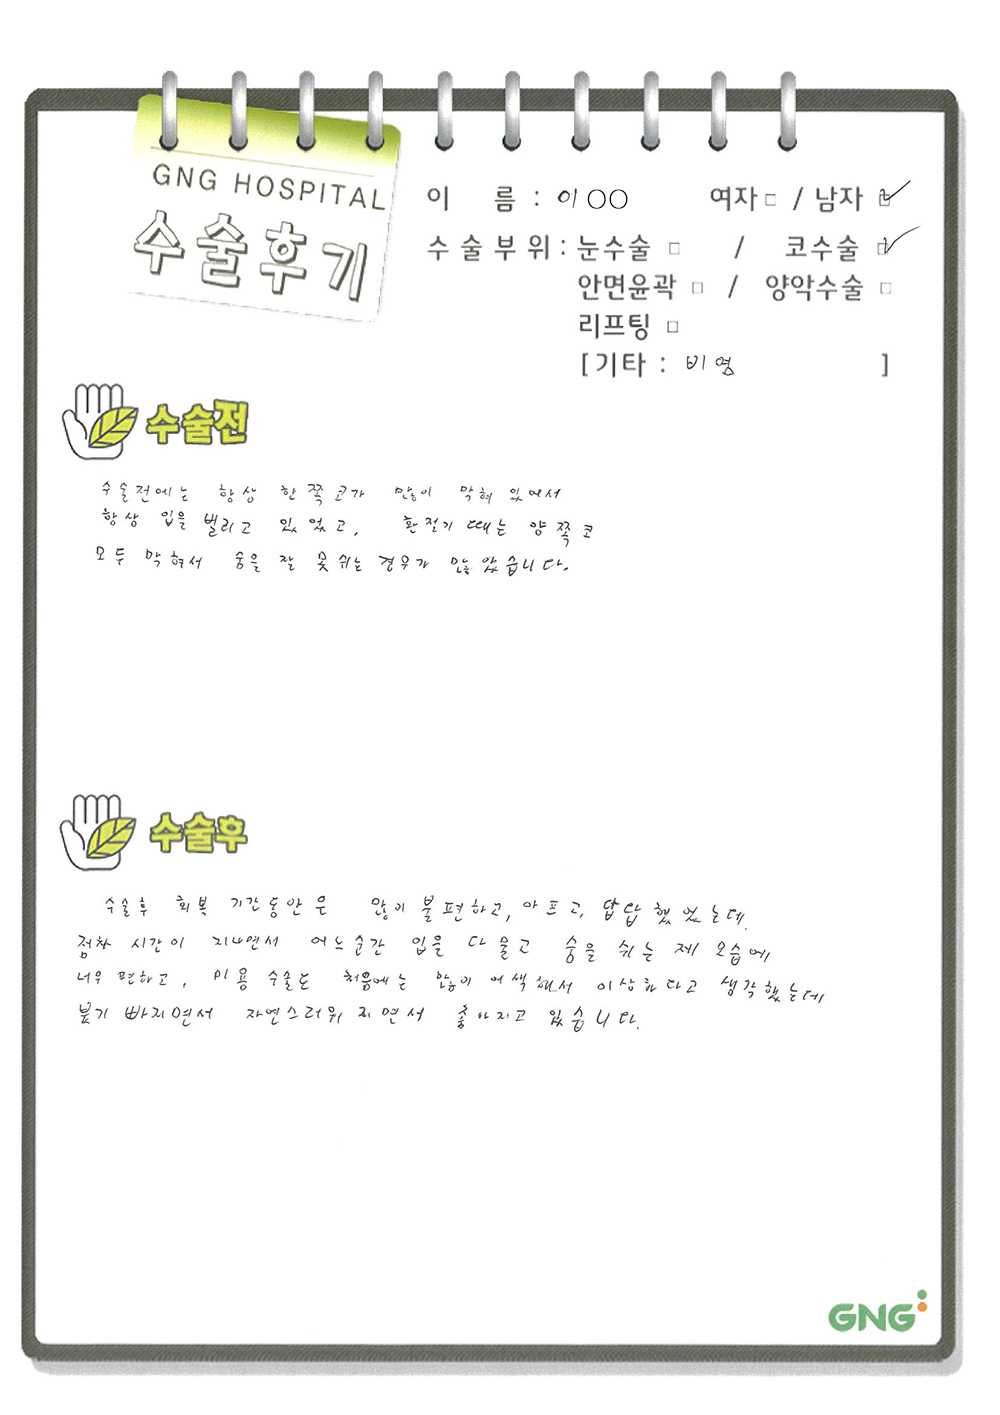 GNG HOSPITAL
수술후기
이 름 : 이OO 여자□ / 남자 ☑
수술부위 : 눈수술 □ / 코수술 ☑
안면윤곽 □ / 양악수술 □
리프팅 □
[기타 : 비염 ]
수술전
수술전에는 항상 한쪽 코가 많이 막혀 있어서
항상 입을 벌리고 있었고, 환절기 때는 양쪽 코
모두 막혀서 숨을 잘 못 쉬는 경우가 많았습니다.
수술후
수술후 회복 기간동안은 많이 불편하고, 아프고, 답답했었는데,
점차 시간이 지나면서 어느순간 입을 다물고 숨을 쉬는 제 모습에
너무 편하고, 미용 수술도 처음에는 많이 어색해서 이상하다고 생각했는데
붓기 빠지면서 자연스러워 지면서 좋아지고 있습니다.
GNG